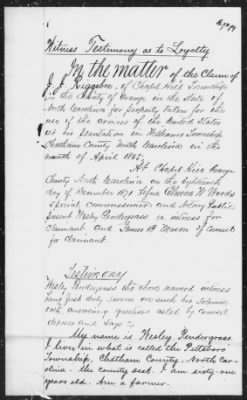 Witness Testimony as to Loyalty.
In the matter of the Claim of
J. J. Riggsbee, of Chapel Hill Township
in the County of Orange in the State of
North Carolina for property taken for the
use of the armies of the United States
at his plantation in Williams Township
Chatham County North Carolina in the
month of April 1865.
At Chapel Hill Orange
County North Carolina on the eighteenth
day of December 1871 before W. Woods
special commissioner and Notary Public
present Wesley Pendergrass a witness for
claimant and James B. Mason of counsel
for claimant.
Testimony
Wesley Pendergrass the above named witness
being first duly sworn on such his solemn
oath, answering questions asked by counsel
deposes and says:
My name is Wesley Pendergrass.
I live in what is called the Pittsboro
Township, Chatham County, North Caro-
lina - the county seat. I am sixty-one
years old. Am a farmer.